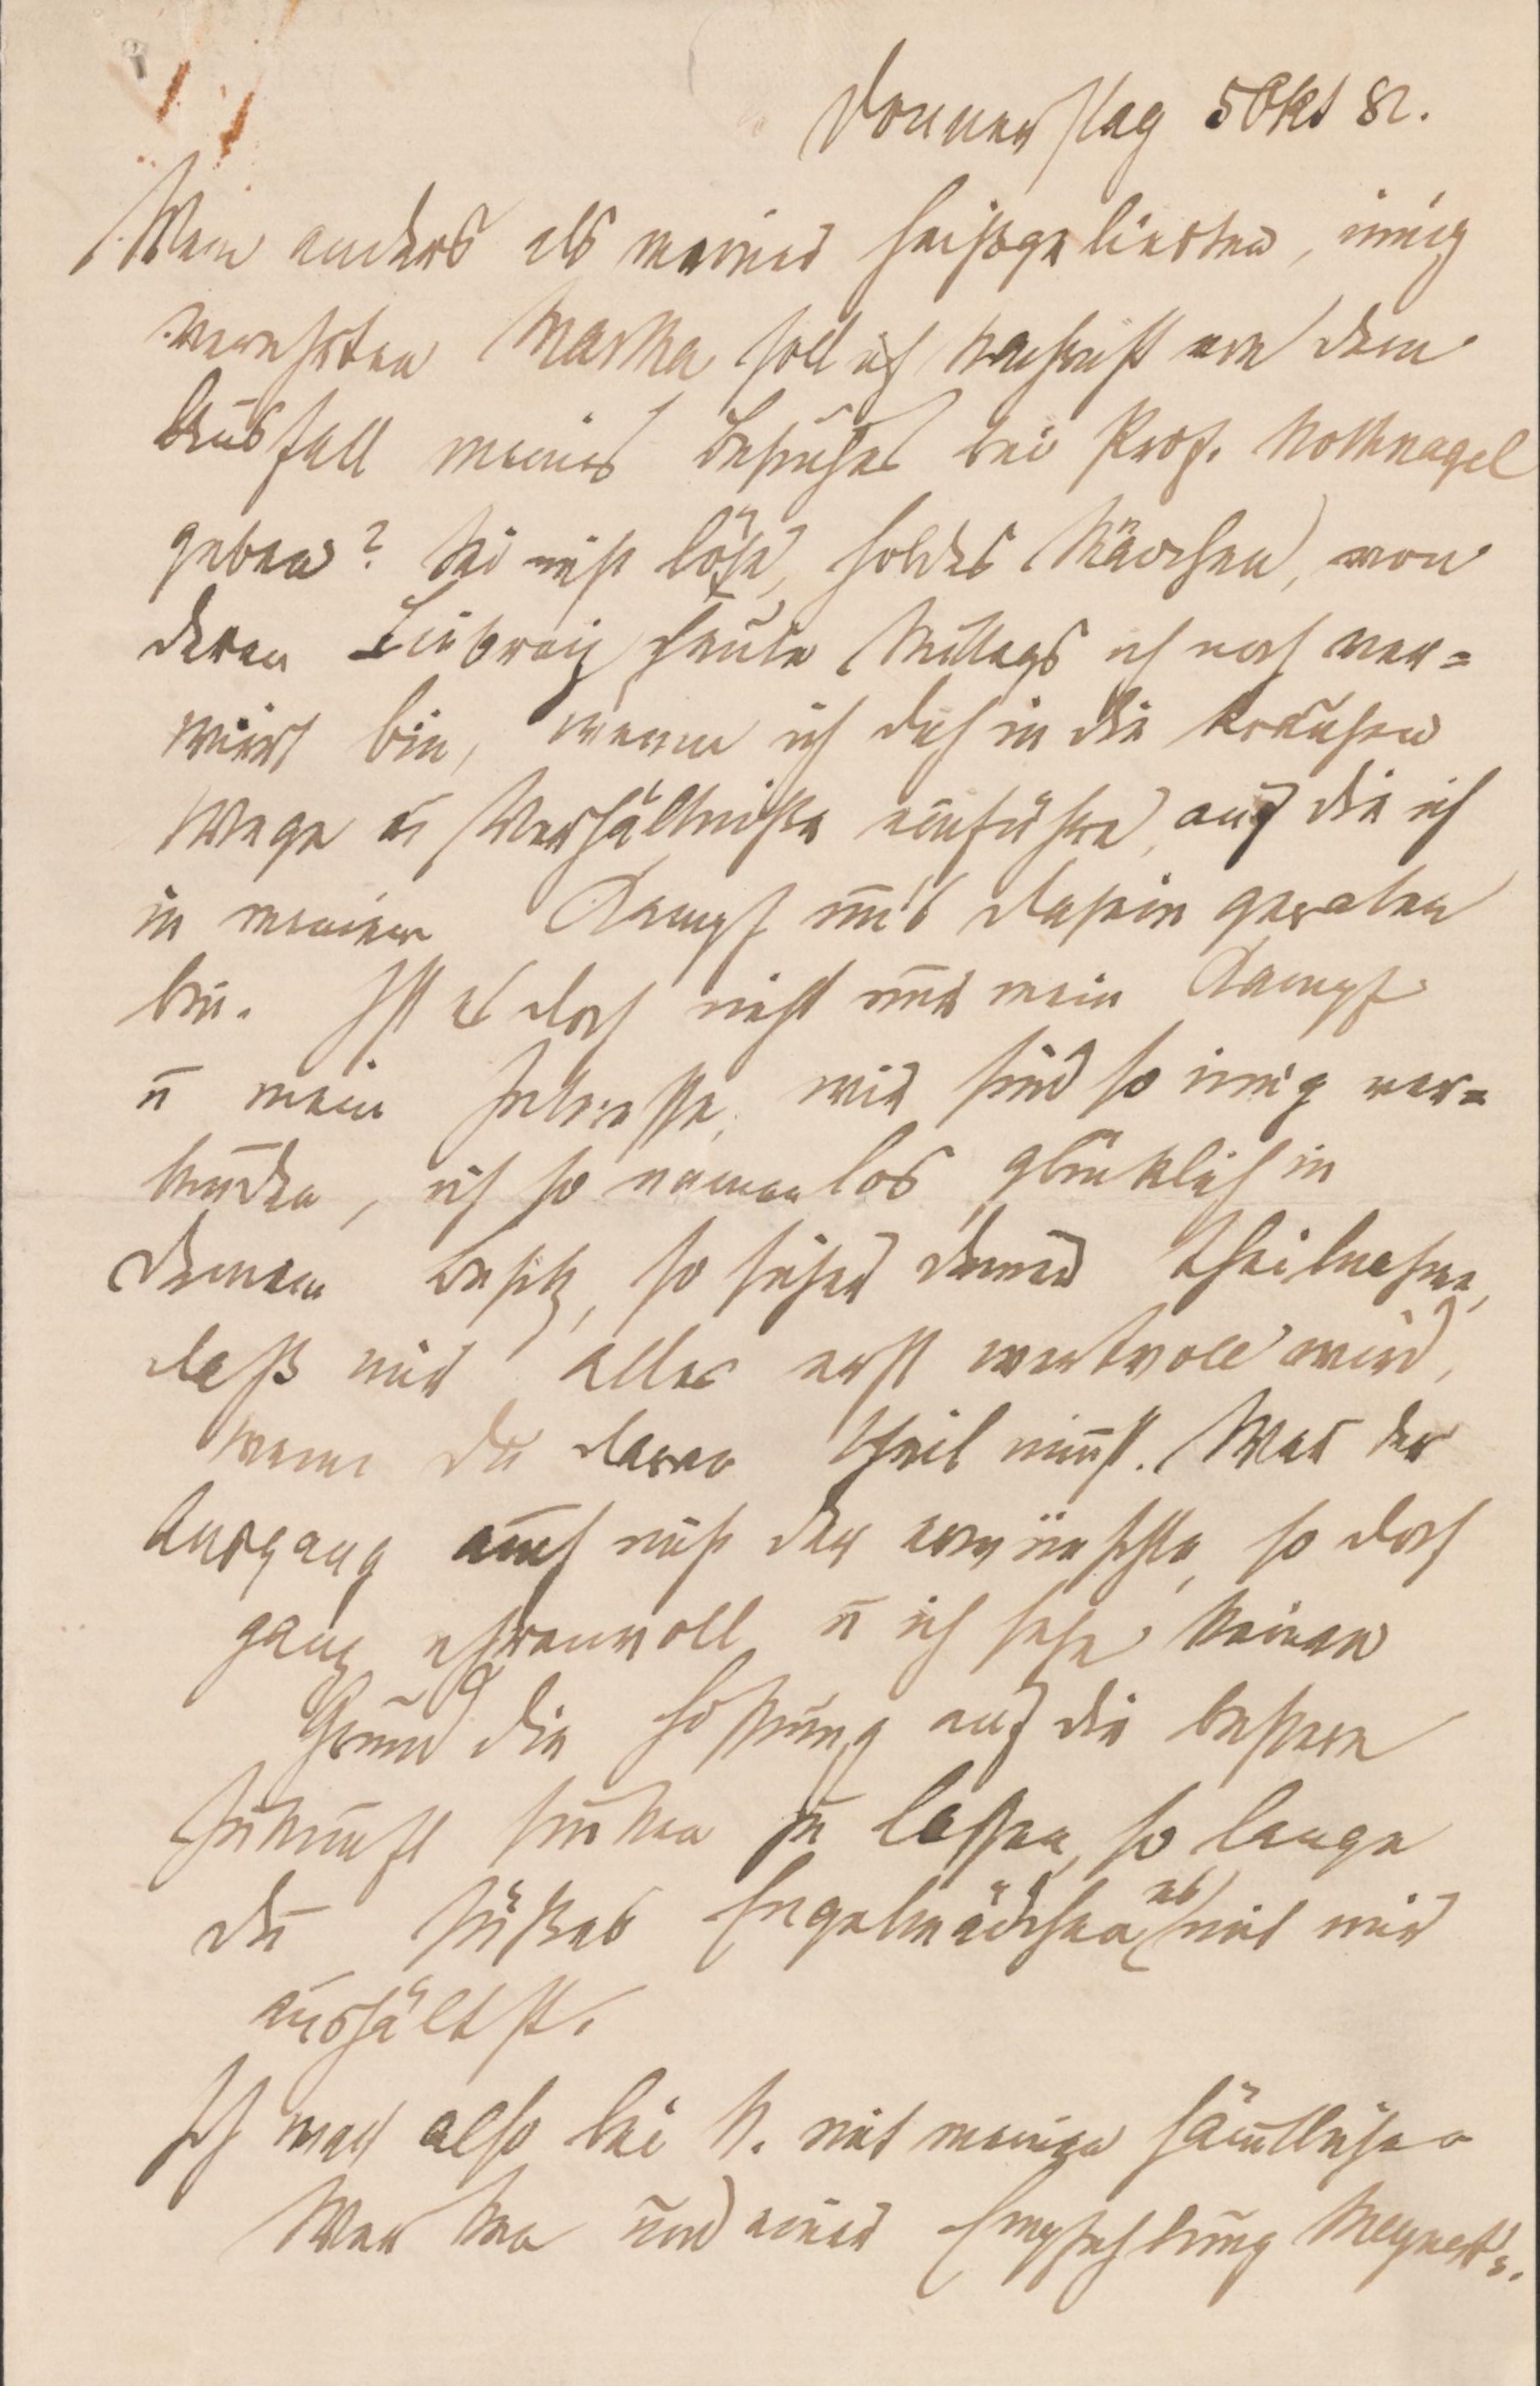 Donnerstag 5 Okt 82.
Wem anders als meiner heißgeliebten, innig
verehrten Martha soll ich Nachricht von dem
Ausfall meines Besuches bei Prof. Nothnagel
geben? Sei nicht böse, holdes Mädchen, von
deren Liebreiz heute Mittags ich noch ver=
wirrt bin, wenn ich dich in die krausen
Wege u Verhältnisse einführe, auf die ich
in meinem Kampf um's Dasein geraten
bin. Ist es doch nicht nur mein Kampf
u mein Interesse, wir sind so innig ver=
bunden, ich so namenlos glücklich in
deinem Besitz, so sicher deiner Theilnahme,
daß mir alles erst wertvoll wird,
wenn du daran theil nimst. War der
Ausgang auch nicht der erwünschte, so doch
ganz ehrenvoll u ich sehe keinen
Grund die Hoffnung auf die bessere
Zukunft sinken zu lassen, so lange
du süßes Engelmädchen es mit mir
aushältst.
Ich war also bei N. mit meinen sämtlichen
Werken und einer Empfehlung Meynert's.